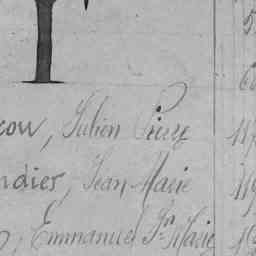 cow, Julien Pierre
ndier, Jean Marie
Emmanuel Fr. Marie